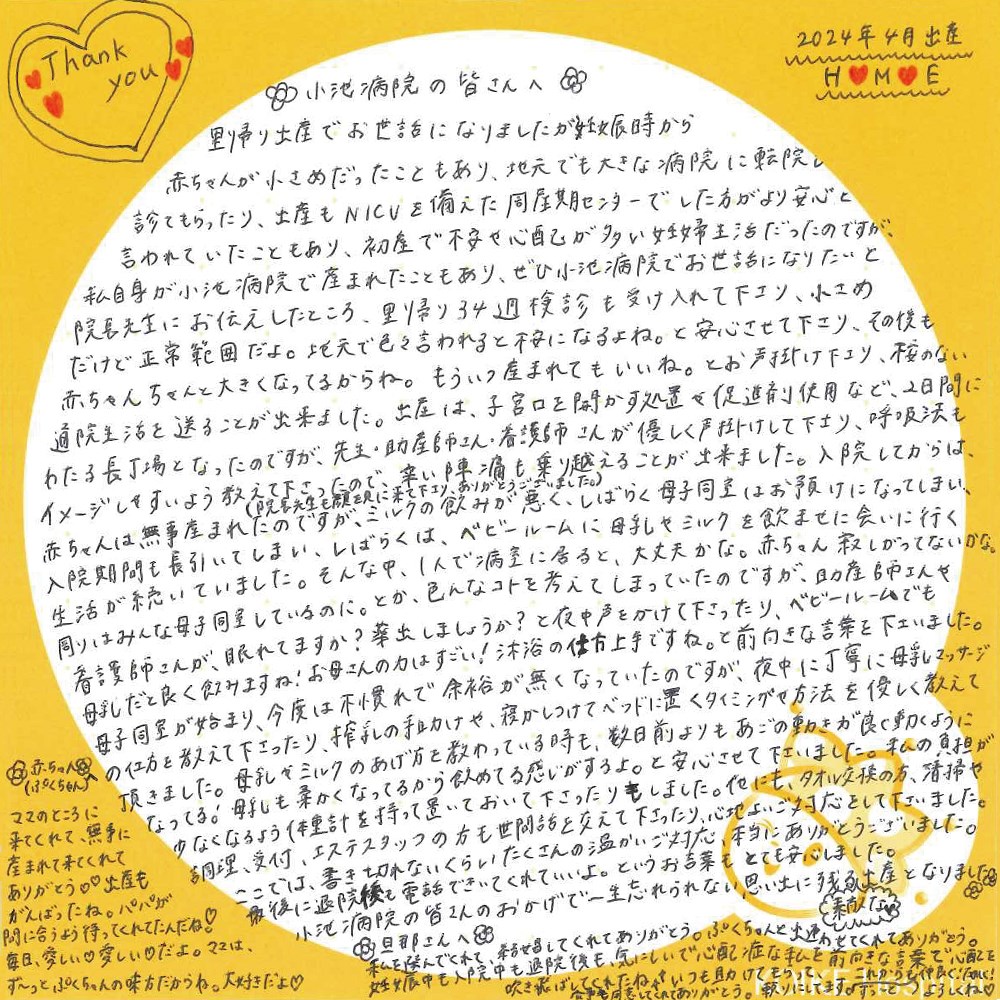 Thank you
2024年4月出産
H♥M♥E
小池病院の皆さんへ
里帰り出産でお世話になりましたが妊娠時から
赤ちゃんが小さめだったこともあり、地元でも大きな病院に転院し
診てもらったり、出産もNICUを備えた周産期センターでした方がより安心と
言われていたこともあり、初産で不安や心配が多い妊婦生活だったのですが、
私自身が小池病院で産まれたこともあり、ぜひ小池病院でお世話になりたいと
院長先生にお伝えしたところ、里帰り34週検診も受け入れて下さり、小さめ
だけど正常範囲だよ。地元で色々言われると不安になるよね。と安心させて下さり、その後も
赤ちゃんちゃんと大きくなってるからね。もういつ産まれてもいいね。とお声掛け下さり、桜のない
通院生活を送ることが出来ました。出産は、子宮口を開かす処置や促進剤使用など、2日間に
わたる長丁場となったのですが、先生・助産師さん・看護師さんが優しく声掛けして下さり、呼吸法も
イメージしやすいよう教えて下さったので、辛い陣痛も乗り越えることが出来ました。入院してからは、
(院長先生も顔を見に来て下さり、ありがとうございました。)
赤ちゃんは無事産まれたのですが、ミルクの飲みが悪く、しばらく母子同室はお預けになってしまい、
入院期間も長引いてしまい、しばらくは、ベビールームに母乳やミルクを飲ませに会いに行く
生活が続いていました。そんな中、1人で病室に居ると、大丈夫かな。赤ちゃん寂しがってないかな。
周りはみんな母子同室しているのに。とか、色んなコトを考えてしまっていたのですが、助産師さんや
看護師さんが、眠れてますか?薬出しましょうか?と夜中声をかけて下さったり、ベビールームでも
母乳だと良く飲みますね!お母さんの力はすごい!沐浴の仕方上手ですね。と前向きな言葉を下さいました。
母子同室が始まり、今度は不慣れで余裕が無くなっていたのですが、夜中に丁寧に母乳マッサージ
の仕方を教えて下さったり、搾乳の手助けや、寝かしつけてベッドに置くタイミングや方法を優しく教えて
頂きました。母乳やミルクのあげ方を教わっている時も、数日前よりもあごの動きが良く動くように
なってる!母乳も柔かくなってるから飲めてる感じがするよ。と安心させて下さいました。私の負担が
少なくなるよう体重計を持って置いておいて下さったりもしました。他にも、タオル交換の方、清掃や
調理、受付、エステスタッフの方も世間話を交えて下さったり、心地よいご対応をして下さいました。
ここでは、書き切れないくらいたくさんの温かいご対応、本当にありがとうございました。
最後に退院後も電話できいてくれていいよ。というお言葉もとても安心しました。
小池病院の皆さんのおかげで一生忘れられない思い出に残る出産となりました
赤ちゃんへ
(ぷくちゃん)
ママのところに
来てくれて、無事に
産まれて来てくれて
ありがとう♡♡出産も
がんばったね。パパが
間に合うよう待っててくれてたんだね♡
毎日、愛しい♡愛しい♡だよ。ママは、
ず〜っとぷくちゃんの味方だからね。大好きだよ♡
旦那さんへ
素敵な
私を選んでくれて、結婚してくれてありがとう。ぷくちゃんと出逢わせてくれてありがとう。
妊娠中も入院中も退院後も、
心配症な私を前向きな言葉で心配を
吹き飛ばしてくれたね。いつも助けてもらって